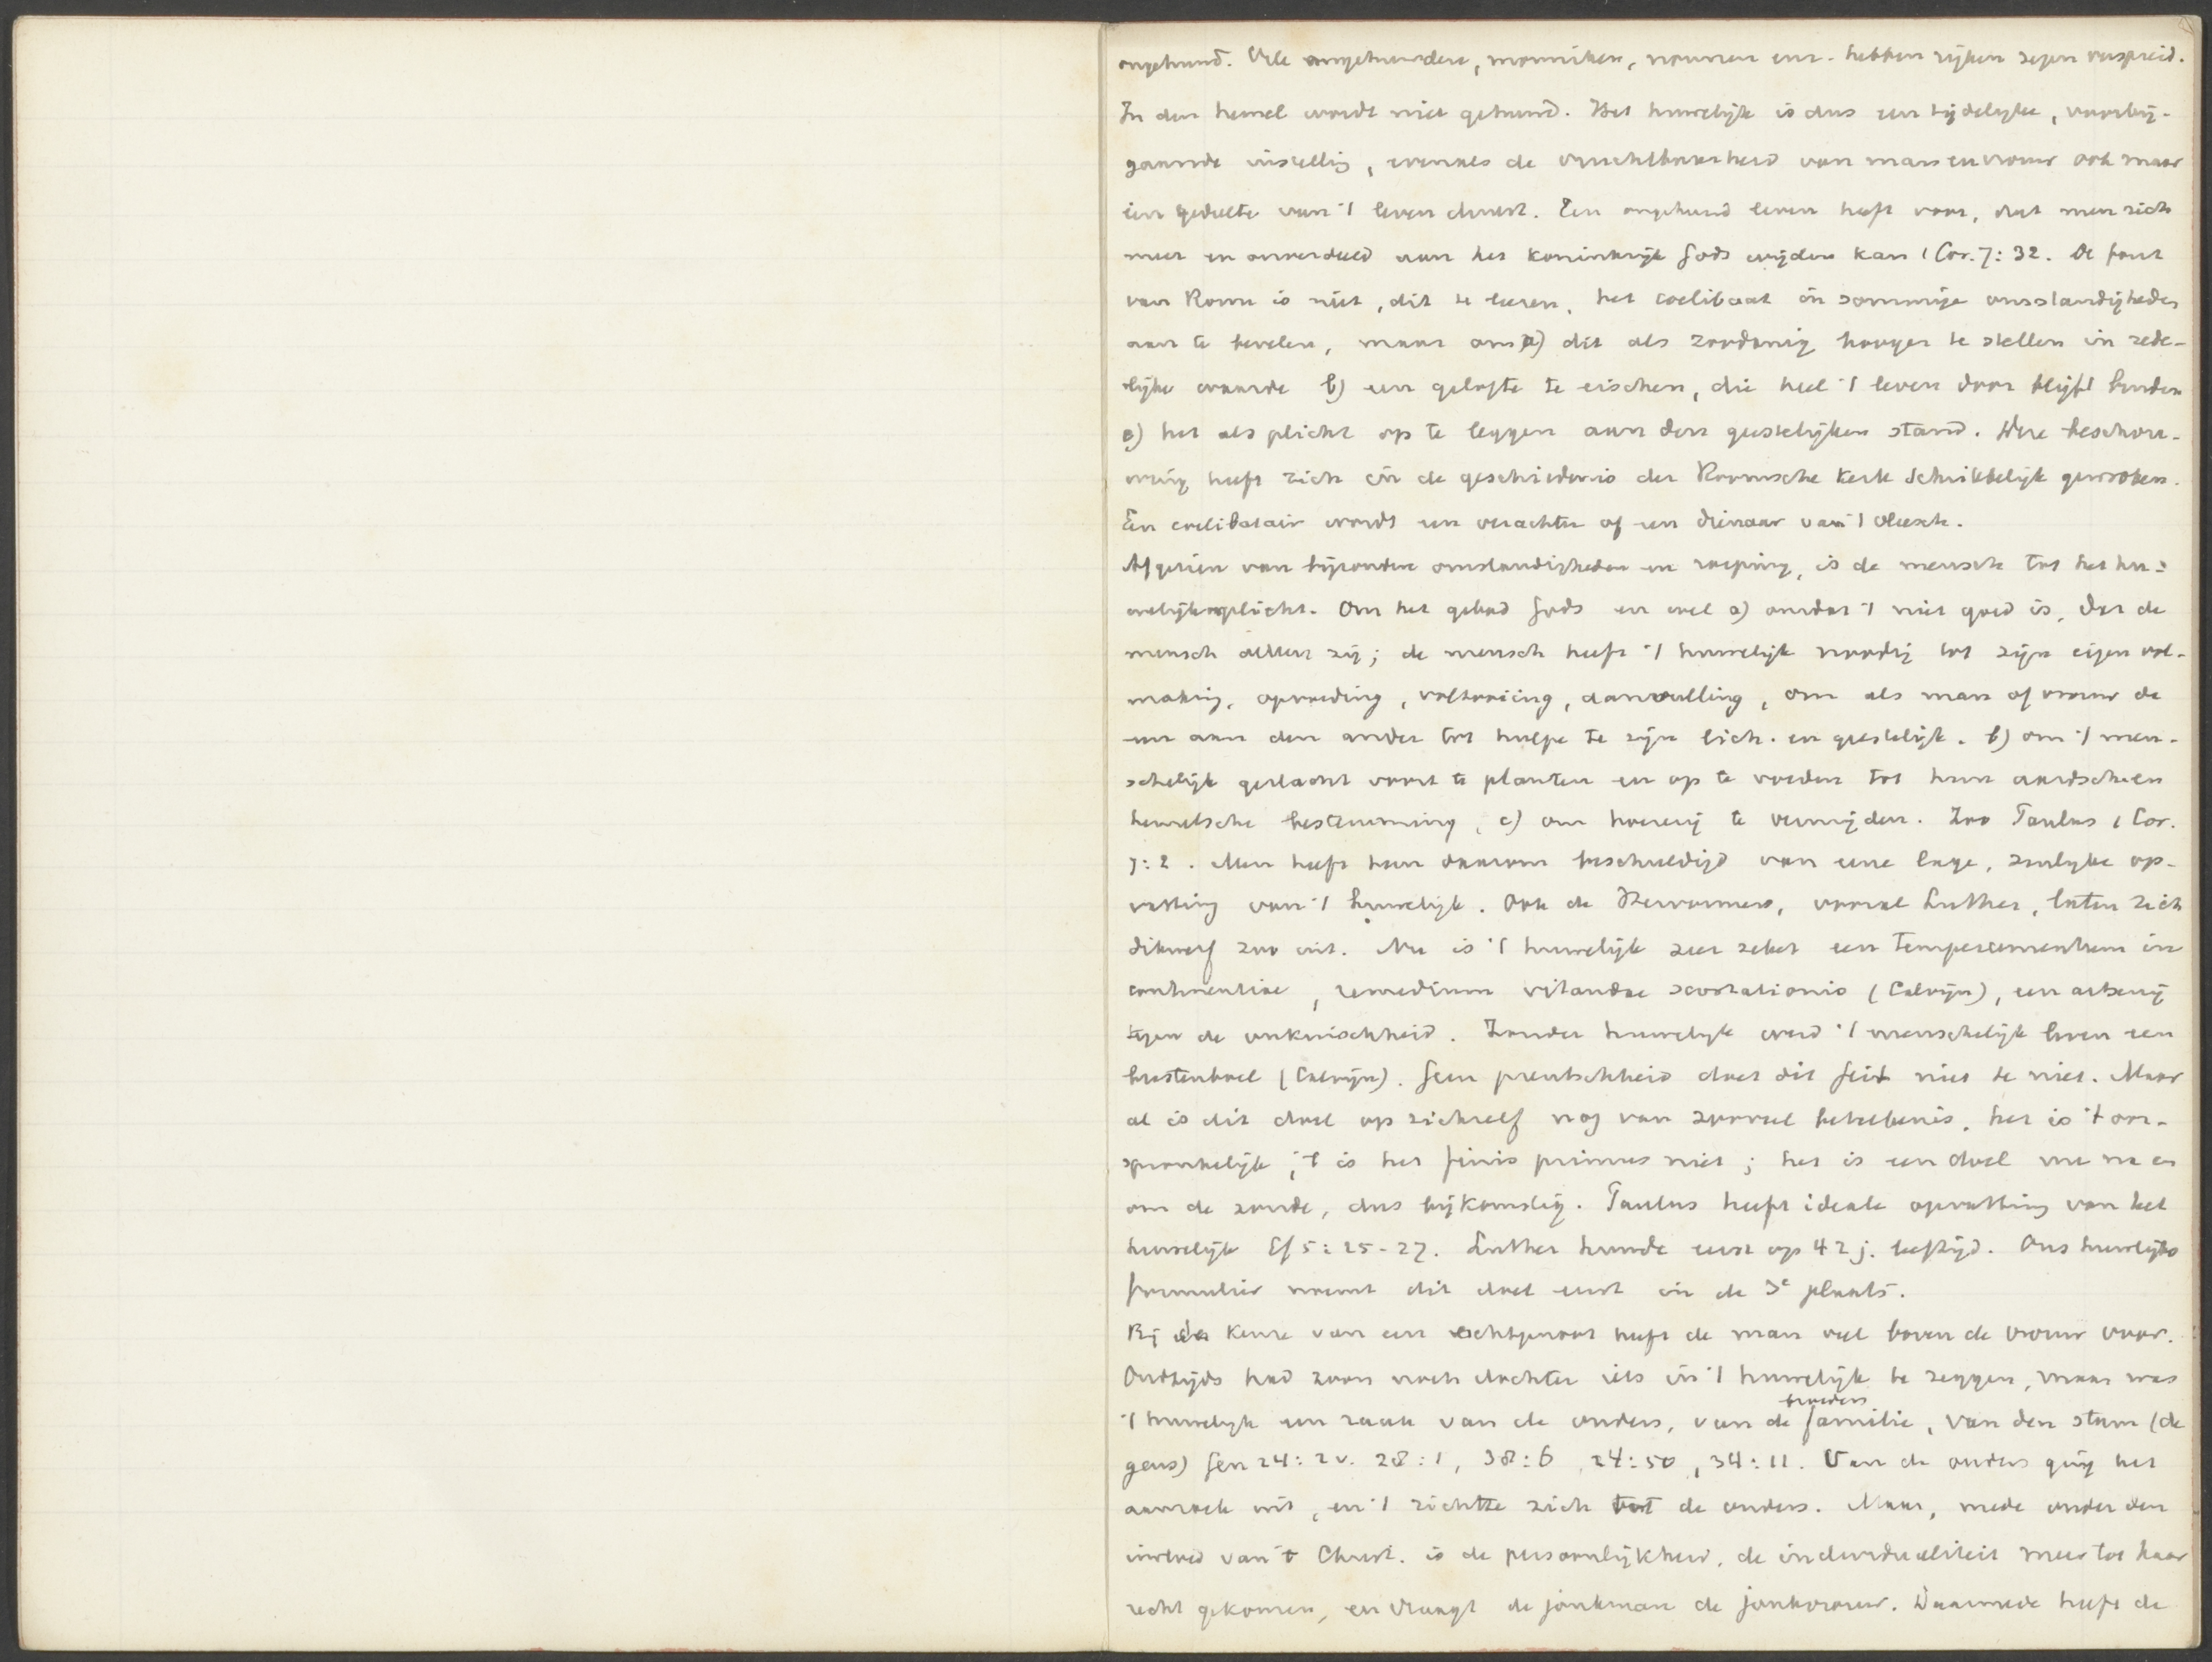 ongehuwd. Vele ongehuwden, monniken, nonnen enz. hebben rijken zegen verspreid.
In den hemel wordt niet gehuwd. Het huwelijk is dus een tijdelyke, voorbij-
gaande instellig, evenals de vruchtbaarheid van man en vrouw ook maar
een gedeelte van 't leven duurt. Een ongehuwd leven heeft voor, dat men zich
meer en onverdeeld aan het koninkrijk Gods wijden kan 1 Cor. 7: 32. De fout
van Rome is niet, dit te leeren, het coelibaat in sommige omstandigheden
aan te bevelen, maar om a) dit als zoodanig hooger te stellen in zede-
lijke waarde b) een gelofte te eischen, die heel 't leven door blijft binden
c) het als plicht op te leggen aan den geestelijken stand. Deze beschou-
wing heeft zich in de geschiedenis der Roomsche Kerk schrikkelijk gewroken.
Een coelibatair wordt een verachter of een dienaar van 't vleesch.
Afgezien van bijzondere omstandigheden en roeping, is de mensch tot het hu-
welijk verplicht. Om het gebod Gods en wel a) omdat 't niet goed is, dat de
mensch alleen zij; de mensch heeft 't huwelijk noodig tot zijn eigen vol-
making, opvoeding, voltooiing, aanvulling, om als man of vrouw de
een aan den ander tot hulpe te zijn lich. en geestelijk. b) om 't men-
schelijk geslacht voort te planten en op te voeden tot hun aardsche en
hemelsche bestemming, c) om hoererij te vermijden. Zoo Paulus 1 Cor.
7: 2. Men heeft hem daarom beschuldigd van eene lage, zinlyke op-
vatting van 't huwelijk. Ook de Hervormers, vooral Luther, laten zich
dikwerf zoo uit. Nu is 't huwelijk zeer zeker een temperamentum in
continentiae, remedium vitandae scortationis (Calvijn), een artsenij
tegen de onkuischheid. Zonder huwelyk werd 't menschelijk leven een
beestenboel (Calvijn). Geen preutschheid doet dit feit niet te niet. Maar
al is dit doel op zichzelf nog van zooveel beteekenis, het is 't oor-
spronkelijk, 't is het finis primus niet; het is een doel na en
om de zonde, dus bijkomstig. Paulus heeft ideale opvatting van het
huwelijk Ef 5: 25-27. Luther huwde eerst op 42 j. leeftijd. Ons huwelijks
formulier noemt dit doel eerst in de 3e plaats.
Bij de keuze van een echtgenoot heeft de man veel boven de vrouw voor.
Oudtijds had zoon noch dochter iets in 't huwelijk te zeggen, maar was
't huwelyk een zaak van de ouders, van de broeders familie, van den stam (de
gens) Gen 24: 2v. 28: 1, 38: 6, 24: 50, 34: 11. Van de ouders ging het
aanzoek uit, en 't richtte zich tot de ouders. Maar, mede onder den
invloed van 't Christ. is de persoonlijkheid, de individualiteit meer tot haar
recht gekomen, en vraagt de jonkman de jonkvrouw. Daarmede heeft de